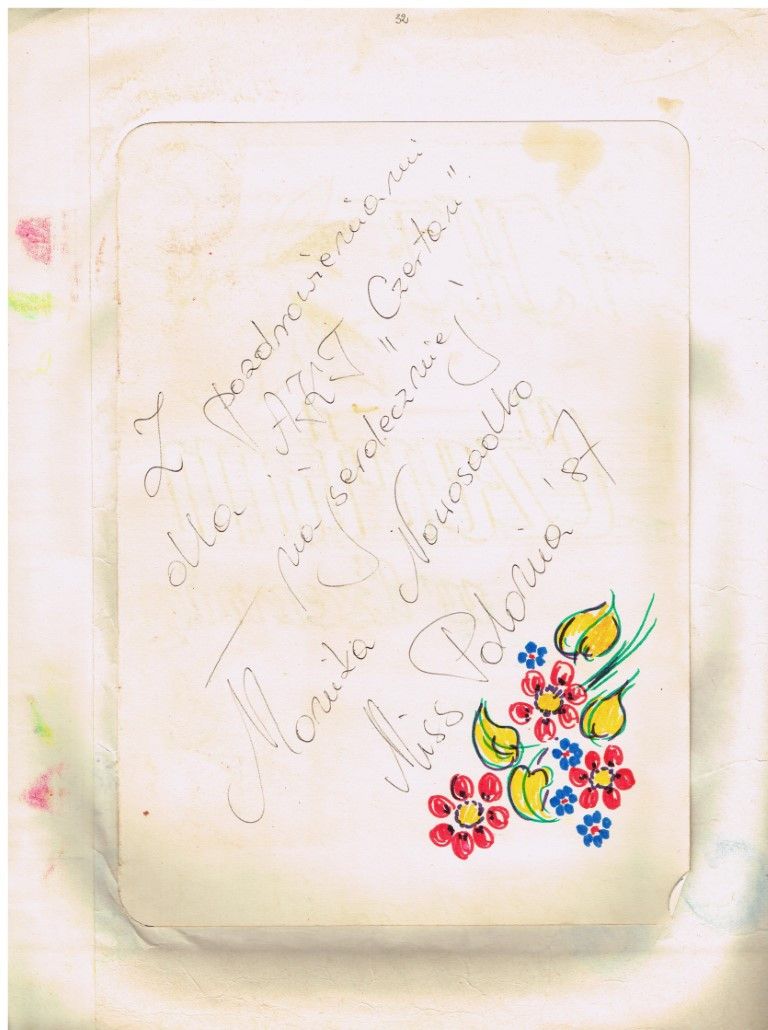 32
Z pozdrowieniami
dla AKT "Czartan".
najserdeczniej!
Monika Nowosadko
Miss Polonia '87